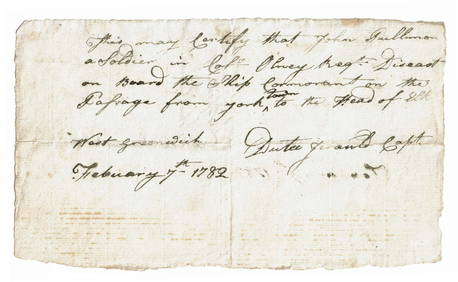 This may Certify that John Tullimon
a Soldier in Colo. Olney Regt. Diseast
on Board the Ship Cormorant on the
Passage from york town to the Head of Elk
West Greenwich Dutee Jerauld Capt.
Febuary 7th 1782